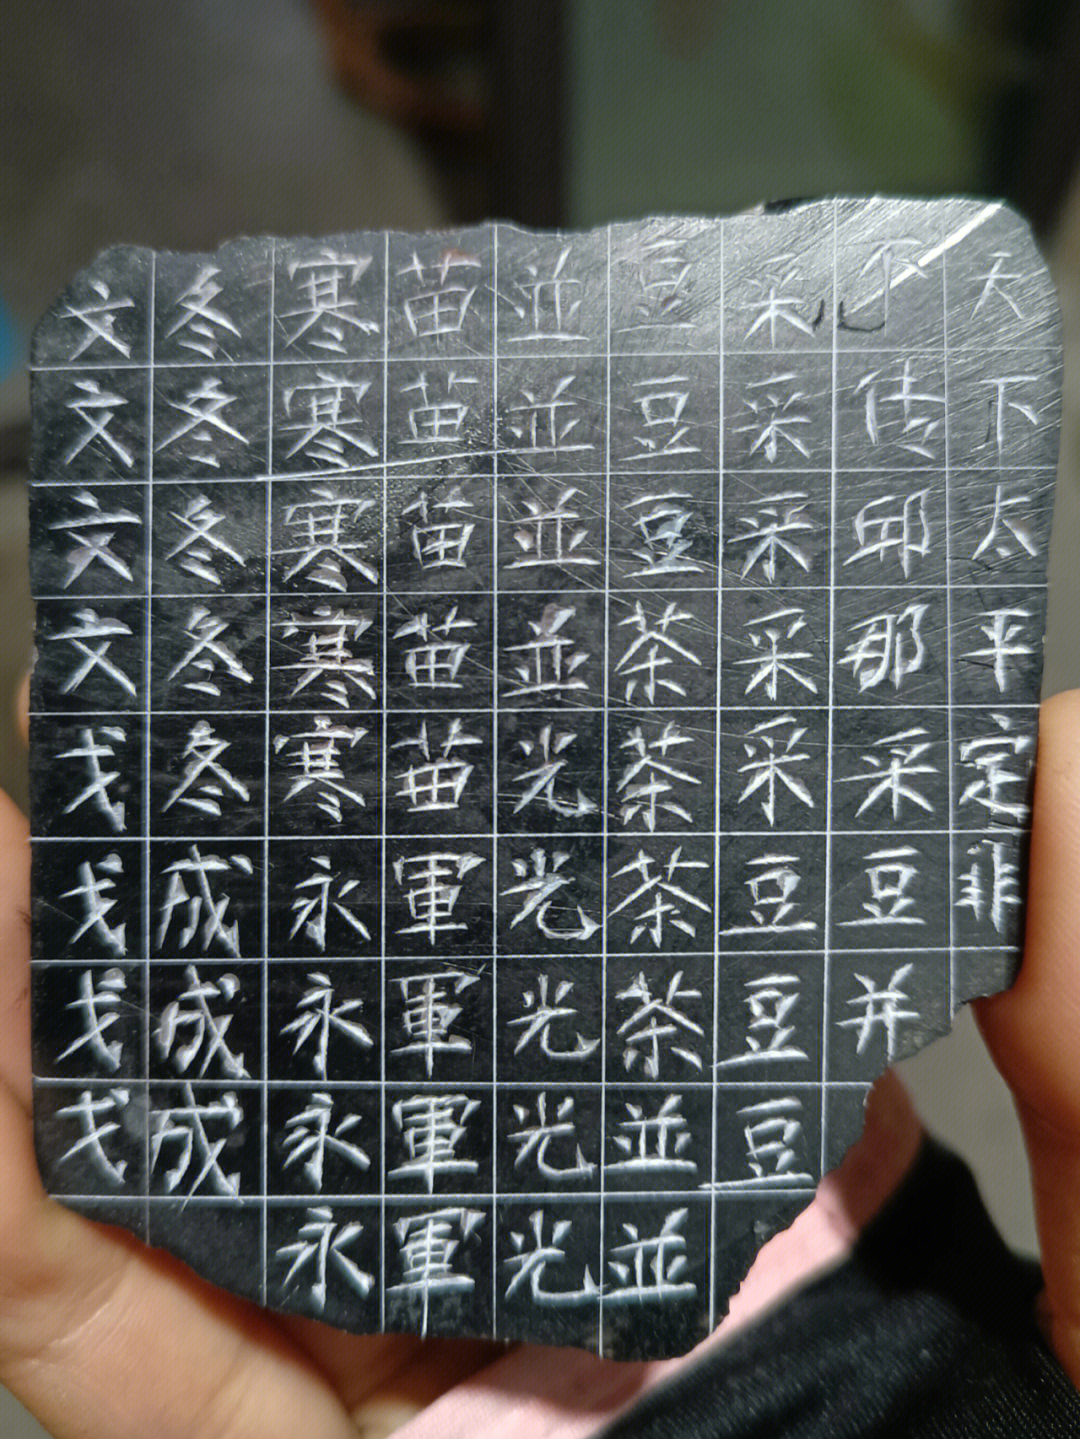 天下太平定非
不邱那采豆并
采采采采采豆豆豆
豆豆豆茶茶茶茶並並
並並並並光光光光光
苗苗苗苗苗軍軍軍軍
寒寒寒寒寒永永永永
冬冬冬冬冬成成成
文文文文戈戈戈戈